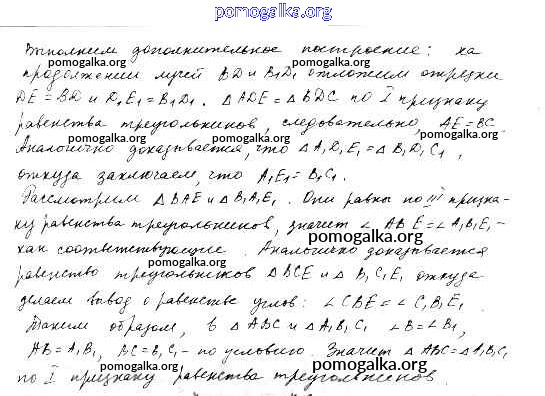 pomogalka.org
Выполним дополнительное построение: на
продолжении лучей BD и B₁D₁ отложим отрезки
DE = BD и D₁E₁ = B₁D₁. △ADE = △BDC по I признаку
pomogalka.org pomogalka.org
равенства треугольников, следовательно, AE = BC.
pomogalka.org pomogalka.org pomogalka.org
Аналогично доказывается, что △A₁D₁E₁ = △B₁D₁C₁,
откуда заключаем, что A₁E₁ = B₁C₁.
pomogalka.org pomogalka.org
Рассмотрим △BAE и △B₁A₁E₁. Они равны по III призна-
ку равенства треугольников, значит ∠ABE = ∠A₁B₁E₁ -
pomogalka.org
как соответствующие. Аналогично доказывается
pomogalka.org pomogalka.org
равенство треугольников △BCE и △B₁C₁E₁ откуда
делаем вывод о равенстве углов: ∠CBE = ∠C₁B₁E₁
pomogalka.org
Таким образом, в △ABC и △A₁B₁C₁ ∠B = ∠B₁,
pomogalka.org
AB = A₁B₁, BC = B₁C₁ - по условию. Значит △ABC = △A₁B₁C₁
pomogalka.org pomogalka.org
по I признаку равенства треугольников.